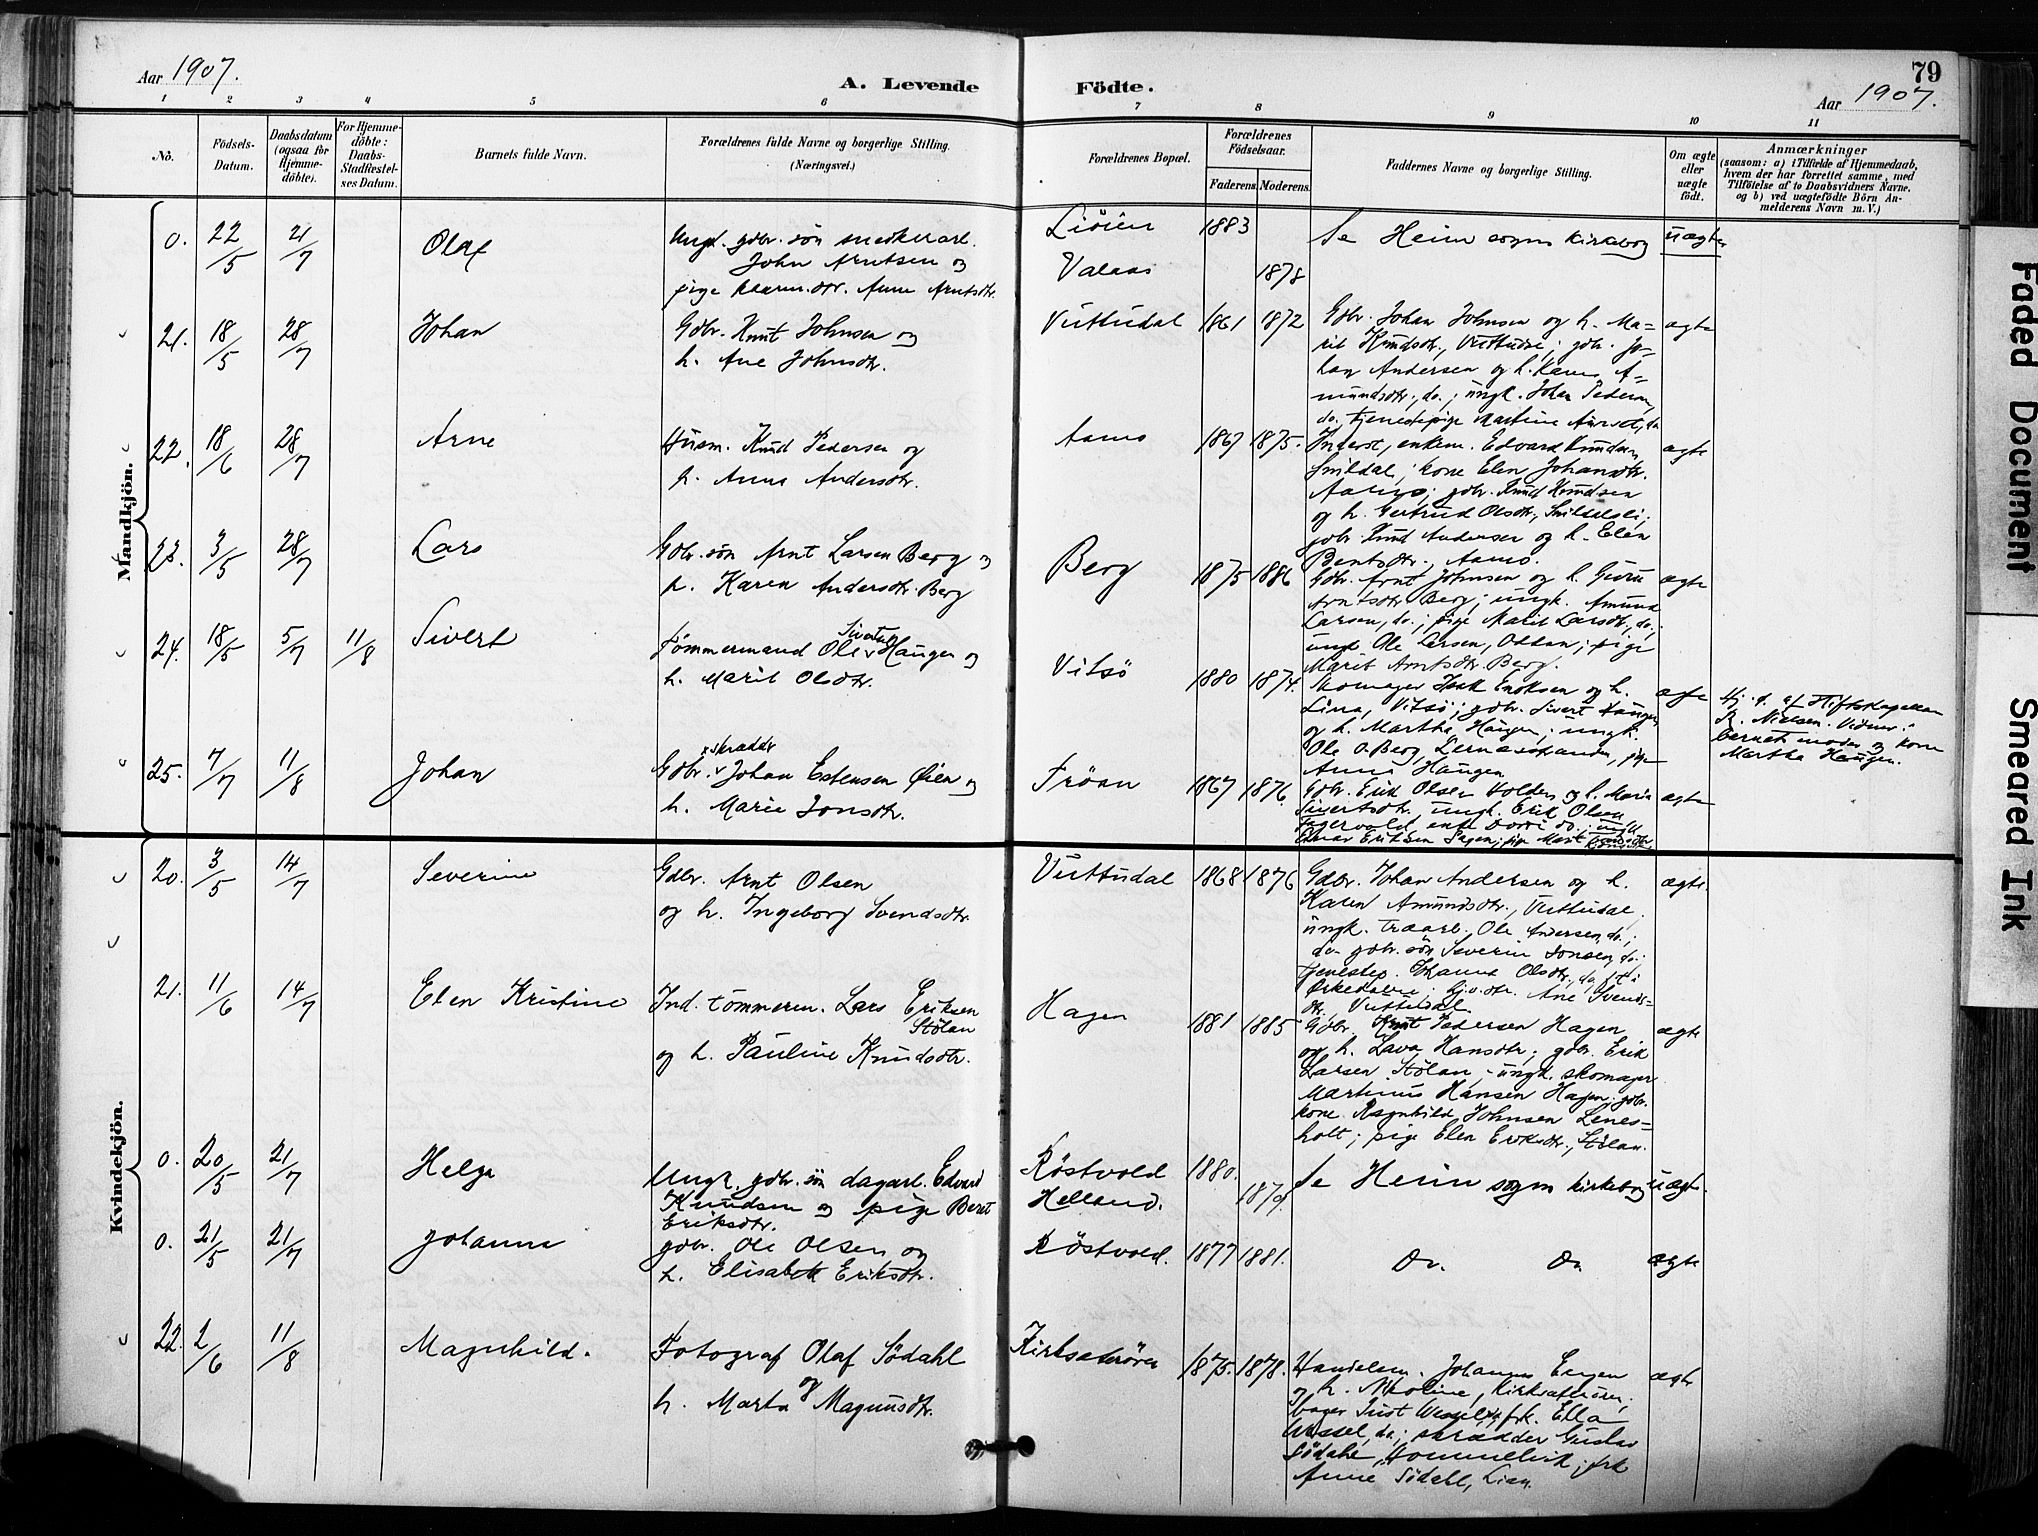 79
Aar 1907.
A. Levende
Födte.
Aar 1907.
1 2 3 4 5 6 7 8 9 10 11
No.
Födsels-
Datum.
Daabsdatum
(ogsaa for
Hjemme-
döbte).
For Hjemme-
döbte:
Daabs-
Stadfæstel-
ses Datum.
Barnets fulde Navn.
Forældrenes fulde Navne og borgerlige Stilling.
(Næringsvei.)
Forældrenes Bopæl.
Forældrenes
Födselsaar.
Faderens. Moderens.
Faddernes Navne og borgerlige Stilling.
Om ægte
eller
uægte
födt.
Anmærkninger
(saasom: a) i Tilfælde af Hjemmedaab,
hvem der har forrettet samme, med
Tilföielse af to Daabsvidners Navne,
og b) ved uægtefödte Börn An-
melderens Navn m. V.)
Mandkjön.
0. 22/5 21/7 Olaf
Ungk. gdbr. sön snedkerarb.
John Arntsen og
pige Anne Arntsdtr.
1883
Valaas 1878
Se Heim sogns kirkebog uægte
21. 18/5 28/7 Johan
Gdbr. Knut Johnsen og
h. Ane Johnsdtr.
Vuttudal 1861 1872
Gdbr. Johan Johnsen og h. Ma-
rit Knudsdtr., Vuttudal; gdbr. Jo-
han Andersen og h. Karen A-
mundsdtr., do.; ungk. Johan Pedersen,
do. tjenestepige Martine do
ægte
22. 18/6 28/7 Arne
Husm. Knud Pedersen og
h. Anna Andersdtr.
Aamo 1867 1875.
Inderst, enkem. Edvard Knudsen,
kone Elen Johansdtr.
Aamo; gdbr. Knud Knudsen
og h. Gertrud Olsdtr.,
gdbr. Knut Andersen og h. Elen
Bentsdtr., Aamo.
ægte
23. 3/5 28/7 Lars
Gdbr. sön Arnt Larsen Berg og
h. Karen Andersdtr. Berg
Berg 1875 1886
Gdbr. Arnt Johnsen og h. Guru
Arntsdtr. Berg; ungk. Amund
Larsen, do.; pige Marit Larsdtr., do.;
ungk. Ole Larsen, pige
Marit Arntsdtr. Berg.
ægte
24. 18/5 5/7 11/8 Sivert
Tömmermand Ole Sivertsen Haugen og
h. Marit Olsdtr.
Vitsö 1880 1874.
Skomager Isak Enoksen og h.
Lina, Vitsö; gdbr. Sivert Haugen
og h. Martha, Haugen; ungk.
Ole O. Berg, pige
Anna Haugen
ægte
Hj. d. af Stiftskapellan
R. Nielsen. Vidner:
barnets moder og kone
Martha Haugen.
25. 7/7 11/8 Johan
Gdbr. skrædder Johan Estensen Øien og
h. Marie Jonsdtr.
Fröan 1867 1876
Gdbr. Erik Olsen Holden og h. Marie
Sivertsdtr. ungk. Erik Olsen
Fagervold, do.; ungk.
Eriksen Sagen; pige Marit
ægte
Kvindekjön.
20. 3/5 14/7 Severine
Gdbr. Arnt Olsen
og h. Ingeborg Svendsdtr.
Vuttudal 1868 1876
Gdbr. Johan Andersen og h.
Karen Amundsdtr., Vuttudal,
ungk. træarb. Ole Andersen, do.;
gdbr. sön Severin Jonsen, do.;
tjenestep. Johanna Olsdtr., do.,
Ane Svends-
dtr. Vuttudal.
ægte
21. 11/6 14/7 Elen Kristine
Ind. tömmerm. Lars Eriksen
Stölan
og h. Pauline Knudsdtr.
Hagen 1881 1885
Gdbr. Knut Pedersen Hagen
og h. Hansdtr; gdbr. Erik
Larsen Stölan, ungk. skomager
Martinus Hansen Hagen; gdbr.
kone Ragnhild Johnsen Lenes-
holt; pige Elen Eriksdtr., Stölan.
ægte
0. 20/5 21/7 Helga
Ungk. gdbr. sön dagarb. Edvard
Knudsen og pige Beret
Eriksdtr.
Röstvold 1880.
Helland. 1879.
Se Heim sogns kirkebog uægte.
0. 21/5 21/7 Johanna
gdbr. Ole Olsen og
h. Elisabeth Eriksdtr.
Röstvold. 1877 1881. Do. Do. ægte
22. 2/6 11/8 Magnhild.
Fotograf Olaf Södahl
og
h. Marta Magnusdtr.
Kirksæterören 1875. 1878.
Handelsm. Johannes
og h. Nikoline, Kirksæterören;
bager Just Wessel, frk. Ella
Wessel, do.; skrædder Gustav
Södahl, Hommelvik, frk
Anne Södahl, Lian.
ægte
Faded Document
Smeared Ink